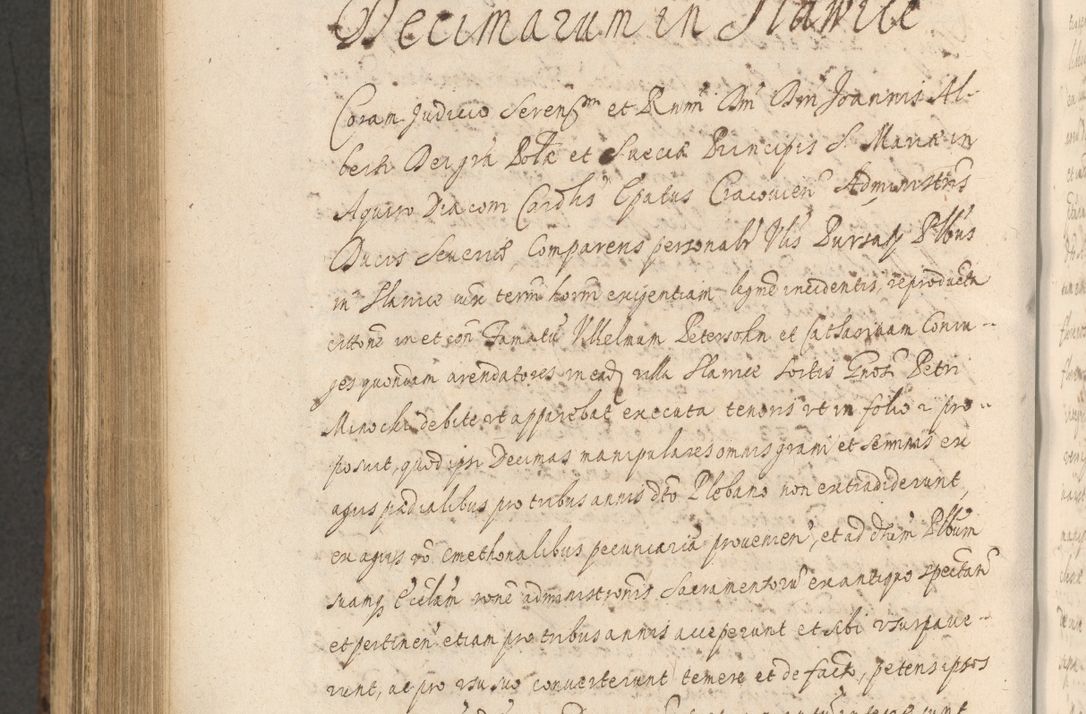 Decimarum in Slawice
Coram Judicio Sereniss^m et Rnm̄ Dnī Dnī Joannis Al-
berti Dei grā Pole et Sueciæ Principis S. Mariæ in
Aquiro Diaconi Cardlis Epatus Cracovien Administris
Ducis Severiæ Comparens personalr Vlis Bursaþ Plbus
in Slawice vix term horm exigentiam legme incidentis, reproducta
cittone in et con Famatu Vilhelmum Petersohn et Catharinam Coniu-
ges quondam arendatores in ead villa Slawice Sortis Gnosi Petri
Minocki debite ut apparebat executa tenoris ut in folio 2 pro-
posuit, quod ipsi Decimas manipulares omnis grani et seminis ex
agris prædialibus pro tribus annis dto Plebano non extradiderunt,
ex agris vo Cmethonalibus pecuniaria provenien, et ad dtum Plbum
suamq Ecclam rone administronis Sacramentoru ex antiquo spectan
et pertinen etiam pro tribus annis acceperunt et sibi usurpave-
runt, ac pro usu suo converterunt temere et de facto, petens ipsos